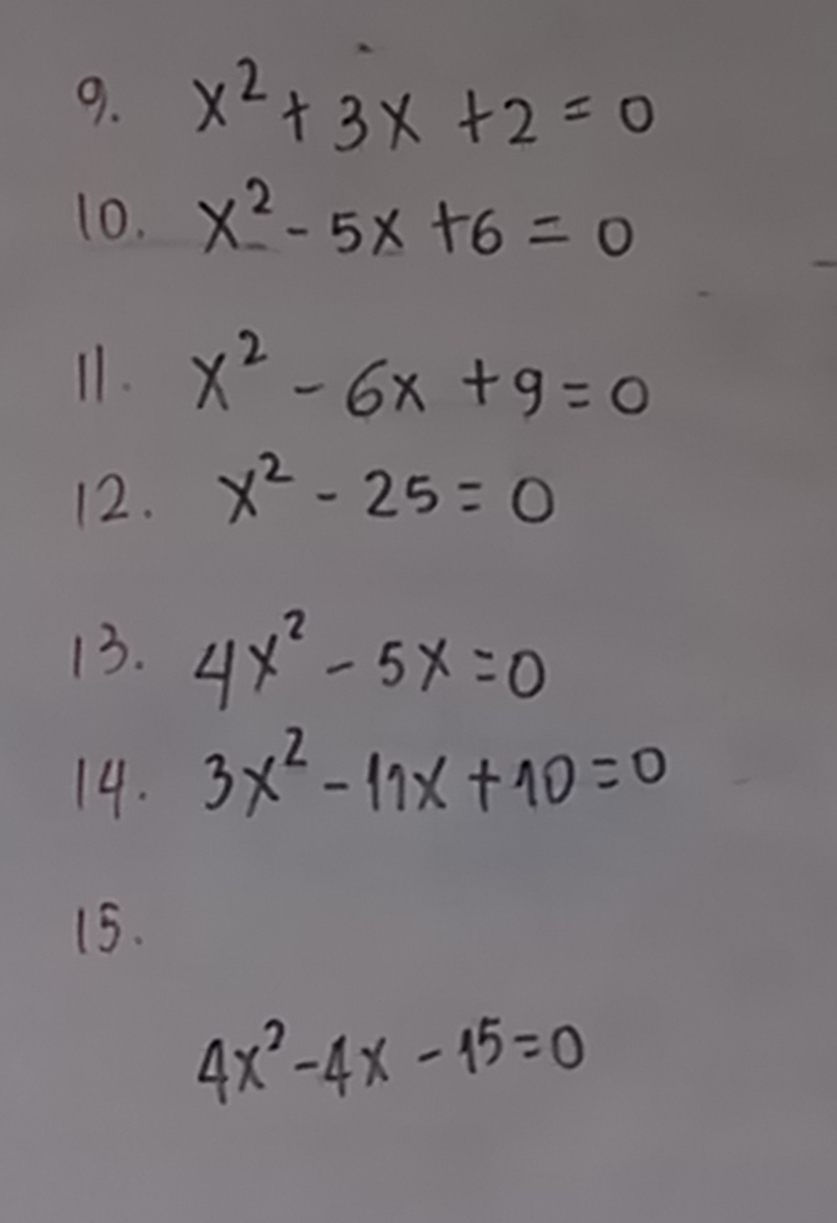 9. x² + 3x + 2 = 0
10. x² - 5x + 6 = 0
11. x² - 6x + 9 = 0
12. x² - 25 = 0
13. 4x² - 5x = 0
14. 3x² - 11x + 10 = 0
15.
4x² - 4x - 15 = 0